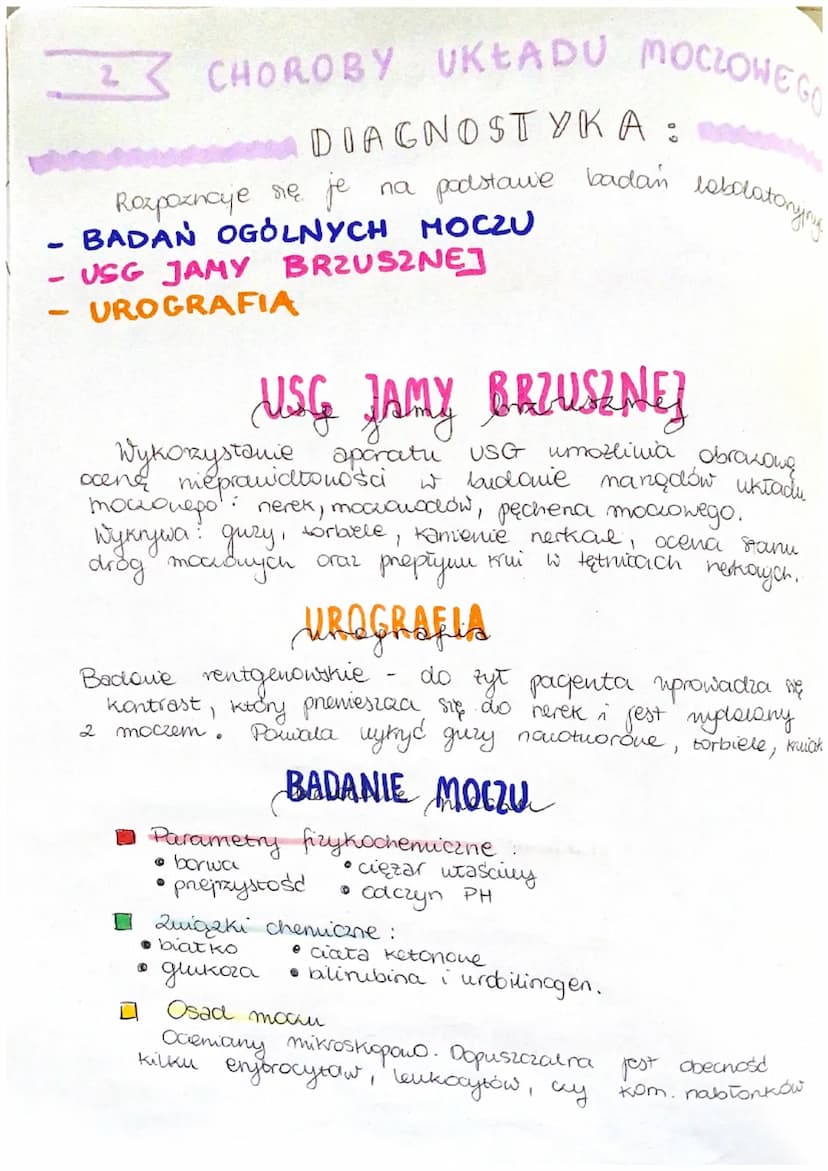 2 CHOROBY UKŁADU MOCZOWEGO
DIAGNOSTYKA:
Rozpoznaje się je na podstawie badań labolatoryjny
- BADAŃ OGÓLNYCH MOCZU
- USG JAMY BRZUSZNEJ
- UROGRAFIA
USG JAMY BRZUSZNEJ
usg jamy brzusznej
Wykorzystanie aparatu USG umożliwia obrazową
ocenę nieprawidłowości w budowie narządów układu
moczowego: nerek, moczowodów, pęcherza moczowego.
Wykrywa: guzy, torbiele, kamienie nerkowe, ocena stanu
dróg moczowych oraz przepływu krwi w tętnicach nerkowych.
UROGRAFIA
urografia
Badanie rentgenowskie - do żył pacjenta wprowadza się
kontrast, który przemieszcza się do nerek i jest wydalany
z moczem. Pozwala wykryć guzy nowotworowe, torbiele,
BADANIE MOCZU
badanie moczu
Parametry fizykochemiczne:
• barwa • ciężar właściwy
• przejrzystość • odczyn PH
Związki chemiczne:
• białko • ciała ketonowe
• glukoza • bilirubina i urobilinogen.
Osad moczu
Oceniany mikroskopowo. Dopuszczalna jest obecność
kilku erytrocytów, leukocytów, czy kom. nabłonków